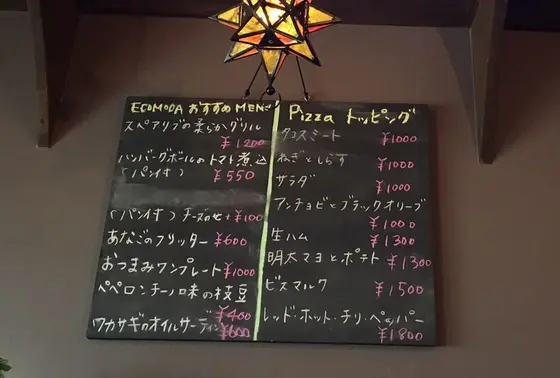 ECOMODA おすすめ MENU
スペアリブの柔らかグリル
¥1200
ハンバーグボールのトマト煮込
(パン付) ¥550
(パン付) チーズのせ+¥100
あなごのフリッター ¥600
おつまみワンプレート ¥1000
ペペロンチーノ味の枝豆
¥400
ワカサギのオイルサーディン ¥600
Pizza トッピング
タコスミート ¥1000
ねぎとしらす ¥1000
サラダ ¥1000
アンチョビとブラックオリーブ
¥1000
生ハム ¥1300
明太マヨとポテト ¥1300
ビスマルク ¥1500
レッド・ホット・チリ・ペッパー
¥1800